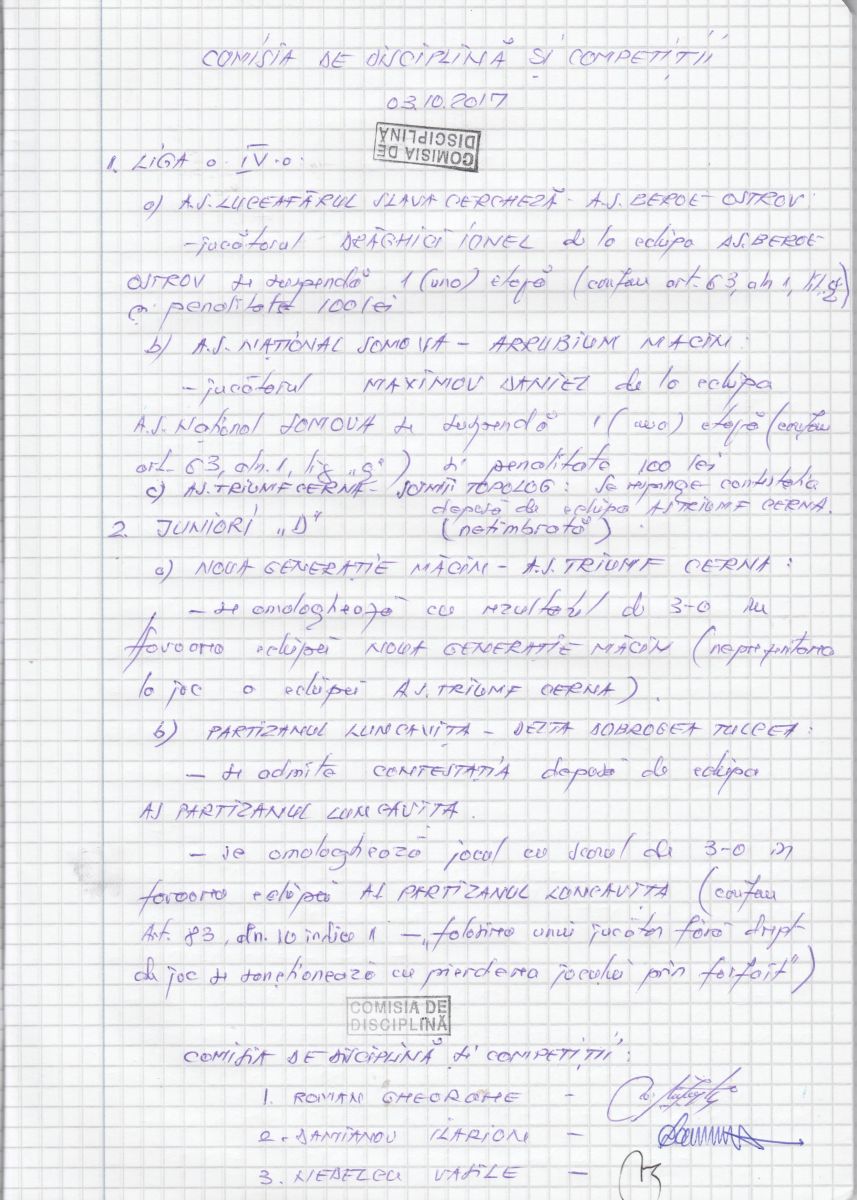 COMISIA DE DISCIPLINĂ ȘI COMPETIȚII
03.10.2017
COMISIA DE
DISCIPLINĂ
1. LIGA a IV-a
a) A.S. LUCEAFĂRUL SLAVA CERCHEZĂ - A.S. BEROE OSTROV:
- jucătorul DRĂGHICI IONEL de la echipa AS. BEROE
OSTROV se suspendă 1 (una) etapă (conform art. 63, aln 1, lit. g)
și penalitate 100 lei
b) A.S. NAȚIONAL SOMOVA - ARRUBIUM MACIN:
- jucătorul MAXIMOV DANIEL de la echipa
A.S. Național SOMOVA se suspendă 1 (una) etapă (conform
art. 63, aln. 1, lit „g") și penalitate 100 lei
c) AS. TRIUMF CERNA - ȘOIMII TOPOLOG: Se respinge contestatia
depusă de echipa AS TRIUMF CERNA.
(netimbrată)
2. JUNIORI „D"
a) NOUA GENERAȚIE MĂCIN - A.S. TRIUMF CERNA:
- se omologhează cu rezultatul de 3-0 în
favoarea echipei NOUA GENERAȚIE MĂCIN (neprezentarea
la joc a echipei A.S. TRIUMF CERNA).
b) PARTIZANUL LUNCAVIȚA - DELTA DOBROGEA TULCEA:
- se admite CONTESTAȚIA depusă de echipa
AS PARTIZANUL LUNCAVIȚA.
- se omologhează jocul cu scorul de 3-0 în
favoarea echipei AS PARTIZANUL LUNCAVIȚA (conform
Art. 83, aln. 10 indice 1 - „folosirea unui jucător fără drept
de joc se sancționează cu pierderea jocului prin forfait")
COMISIA DE
DISCIPLINĂ
COMISIA DE DISCIPLINĂ și COMPETIȚII:
1. ROMAN GHEORGHE -
2. DAMIANOV ILARION -
3. NEDELCU VASILE -